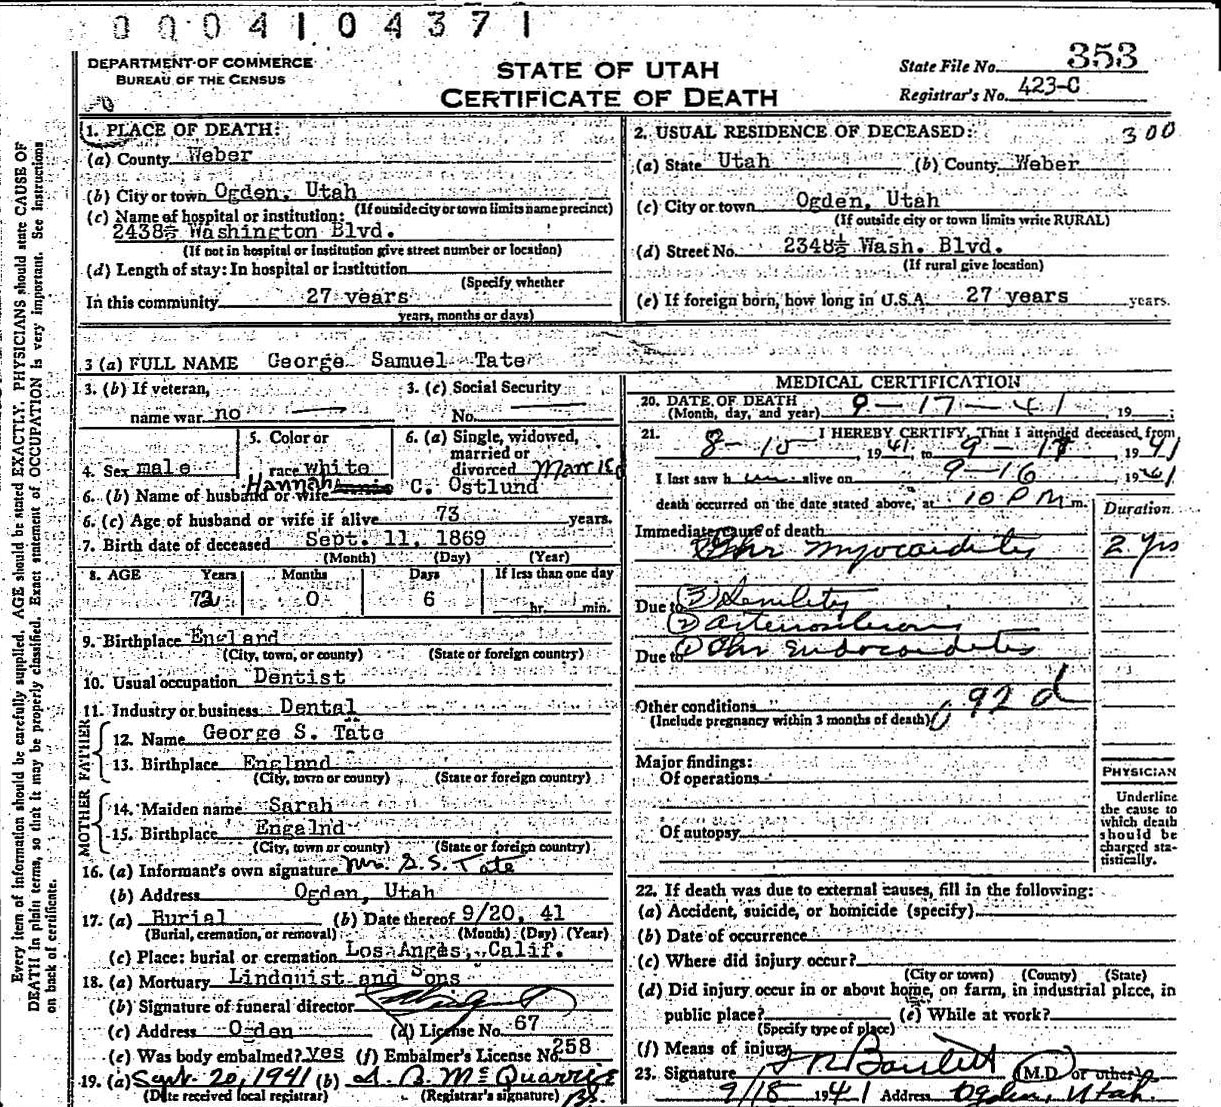 0004104371
DEPARTMENT OF COMMERCE
BUREAU OF THE CENSUS
STATE OF UTAH
CERTIFICATE OF DEATH
State File No. 353
Registrar's No. 423-C
Every item of information should be carefully supplied. AGE should be stated EXACTLY. PHYSICIANS should state CAUSE OF
DEATH in plain terms, so that it may be properly classified. Exact statement of OCCUPATION is very important. See instructions
on back of certificate.
1. PLACE OF DEATH:
(a) County Weber
(b) City or town Ogden, Utah
(If outside city or town limits name precinct)
(c) Name of hospital or institution:
2438½ Washington Blvd.
(If not in hospital or institution give street number or location)
(d) Length of stay: In hospital or institution
(Specify whether
In this community 27 years
years, months or days)
2. USUAL RESIDENCE OF DECEASED: 300
(a) State Utah (b) County Weber
(c) City or town Ogden, Utah
(If outside city or town limits write RURAL)
(d) Street No. 2348½ Wash. Blvd.
(If rural give location)
(e) If foreign born, how long in U.S.A. 27 years years.
3 (a) FULL NAME George Samuel Tate
3. (b) If veteran,
name war no
3. (c) Social Security
No.
4. Sex male
5. Color or
race white
6. (a) Single, widowed,
married or
divorced Married
6. (b) Name of husband or wife Hannah C. Ostlund
6. (c) Age of husband or wife if alive 73 years.
7. Birth date of deceased Sept. 11, 1869
(Month) (Day) (Year)
8. AGE Years Months Days If less than one day
72 0 6 hr. min.
9. Birthplace England
(City, town, or county) (State or foreign country)
10. Usual occupation Dentist
11. Industry or business Dental
FATHER
12. Name George S. Tate
13. Birthplace England
(City, town or county) (State or foreign country)
MOTHER
14. Maiden name Sarah
15. Birthplace Engalnd
(City, town or county) (State or foreign country)
16. (a) Informant's own signature Mrs. G. S. Tate
(b) Address Ogden, Utah
17. (a) Burial (b) Date thereof 9/20, 41
(Burial, cremation, or removal) (Month) (Day) (Year)
(c) Place: burial or cremation Los Anges, Calif.
18. (a) Mortuary Lindquist and Sons
(b) Signature of funeral director
(c) Address Ogden (d) License No. 67
(e) Was body embalmed? yes (f) Embalmer's License No. 258
19. (a) Sept. 20, 1941 (b) McQuarrie
(Date received local registrar) (Registrar's signature)
MEDICAL CERTIFICATION
20. DATE OF DEATH
(Month, day, and year) 9-17-41, 19
21. I HEREBY CERTIFY, That I attended deceased from
8-10-, 1941, to 9-17, 1941
I last saw h im alive on 9-16 1941
death occurred on the date stated above, at 10 PM m.
Duration
Immediate Cause of death
Chr Myocarditis 2 yrs
Due to (3) Senility
(2) Arteriosclerosis
Due to (1) Chr Endocarditis
Other conditions 92 d
(Include pregnancy within 3 months of death)
Major findings:
Of operations
Of autopsy
PHYSICIAN
Underline
the cause to
which death
should be
charged sta-
tistically.
22. If death was due to external causes, fill in the following:
(a) Accident, suicide, or homicide (specify)
(b) Date of occurrence
(c) Where did injury occur?
(City or town) (County) (State)
(d) Did injury occur in or about home, on farm, in industrial place, in
public place? (e) While at work?
(Specify type of place)
(f) Means of injury
23. Signature Bartlett (M.D. or other)
9/18 1941 Address Ogden, Utah